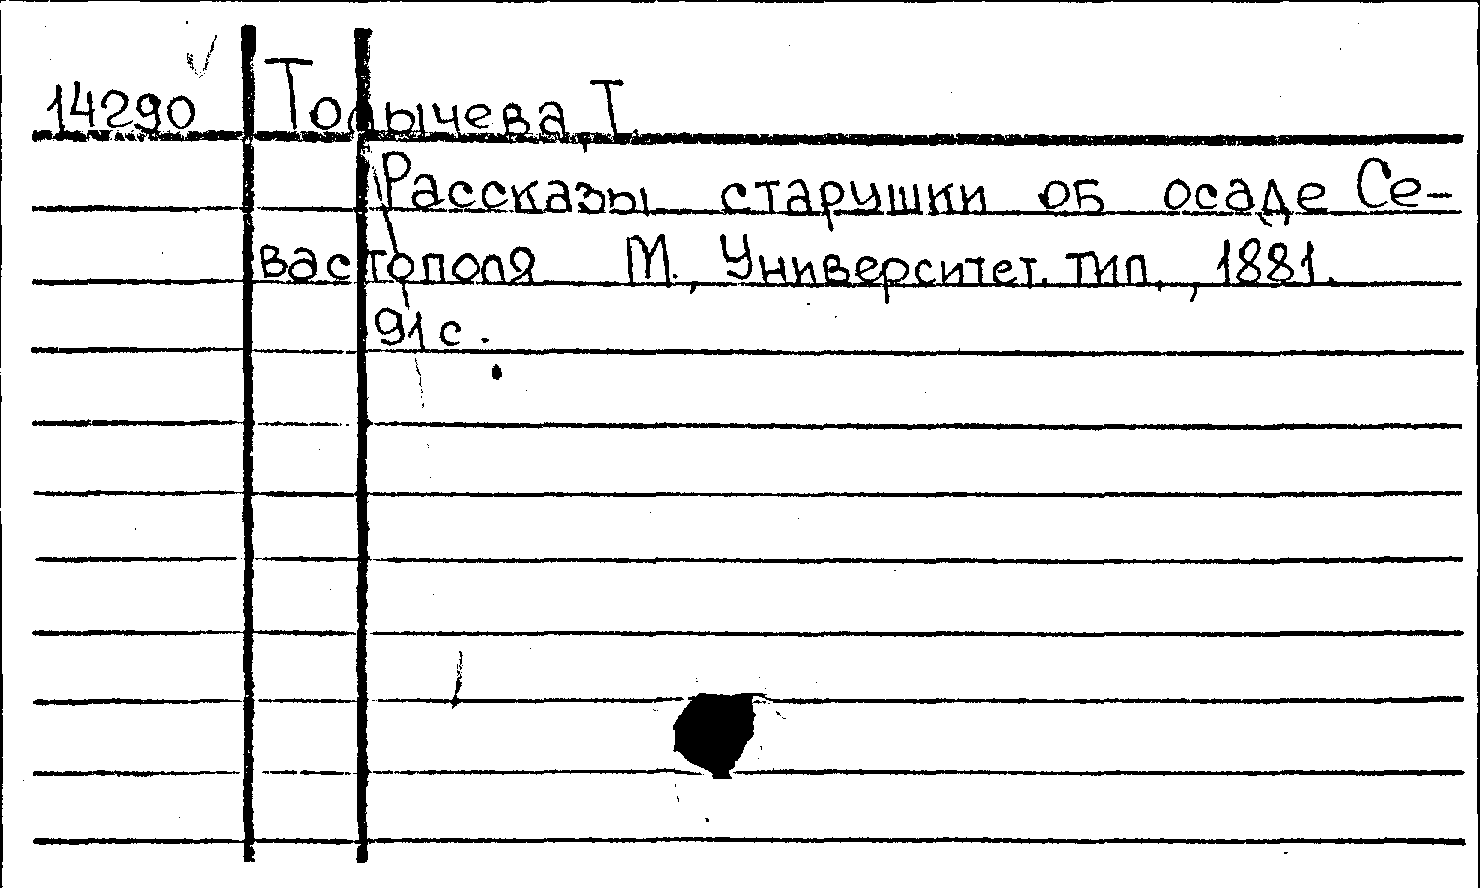 14290 Толычева, Т.
Рассказы старушки об осаде Се-
вастополя М., Университет. тип., 1881.
91 с.